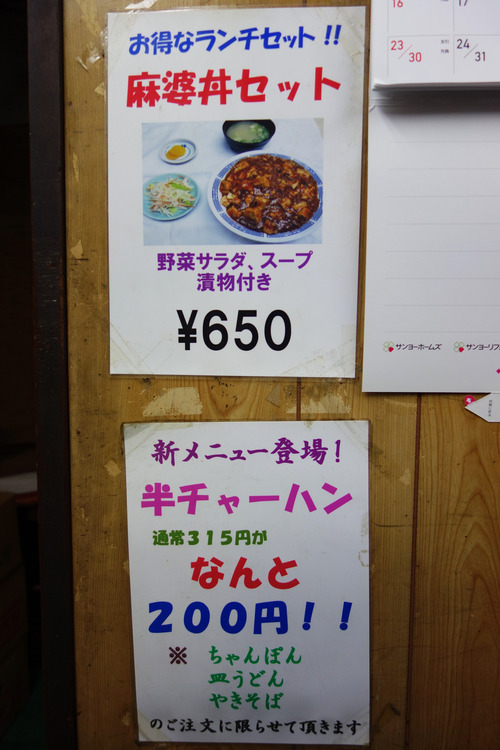 お得なランチセット!!
麻婆丼セット
野菜サラダ、スープ
漬物付き
¥650
16
17
23/30
24/31
サンヨーホームズ
サンヨーリフ
新メニュー登場!
半チャーハン
通常315円が
なんと
200円!!
※ ちゃんぽん
皿うどん
やきそば
のご注文に限らせて頂きます